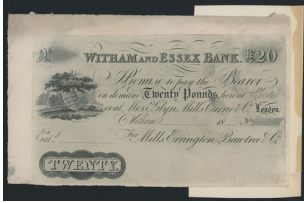 No WITHAM AND ESSEX BANK. £20
Promise to pay the Bearer
on demand Twenty Pounds, here or at
or at Messrs Glyn, Mills, Currie & Co. London.
Witham 18
Ent.d
For Mills, Errington, Bawtree & Co.
TWENTY